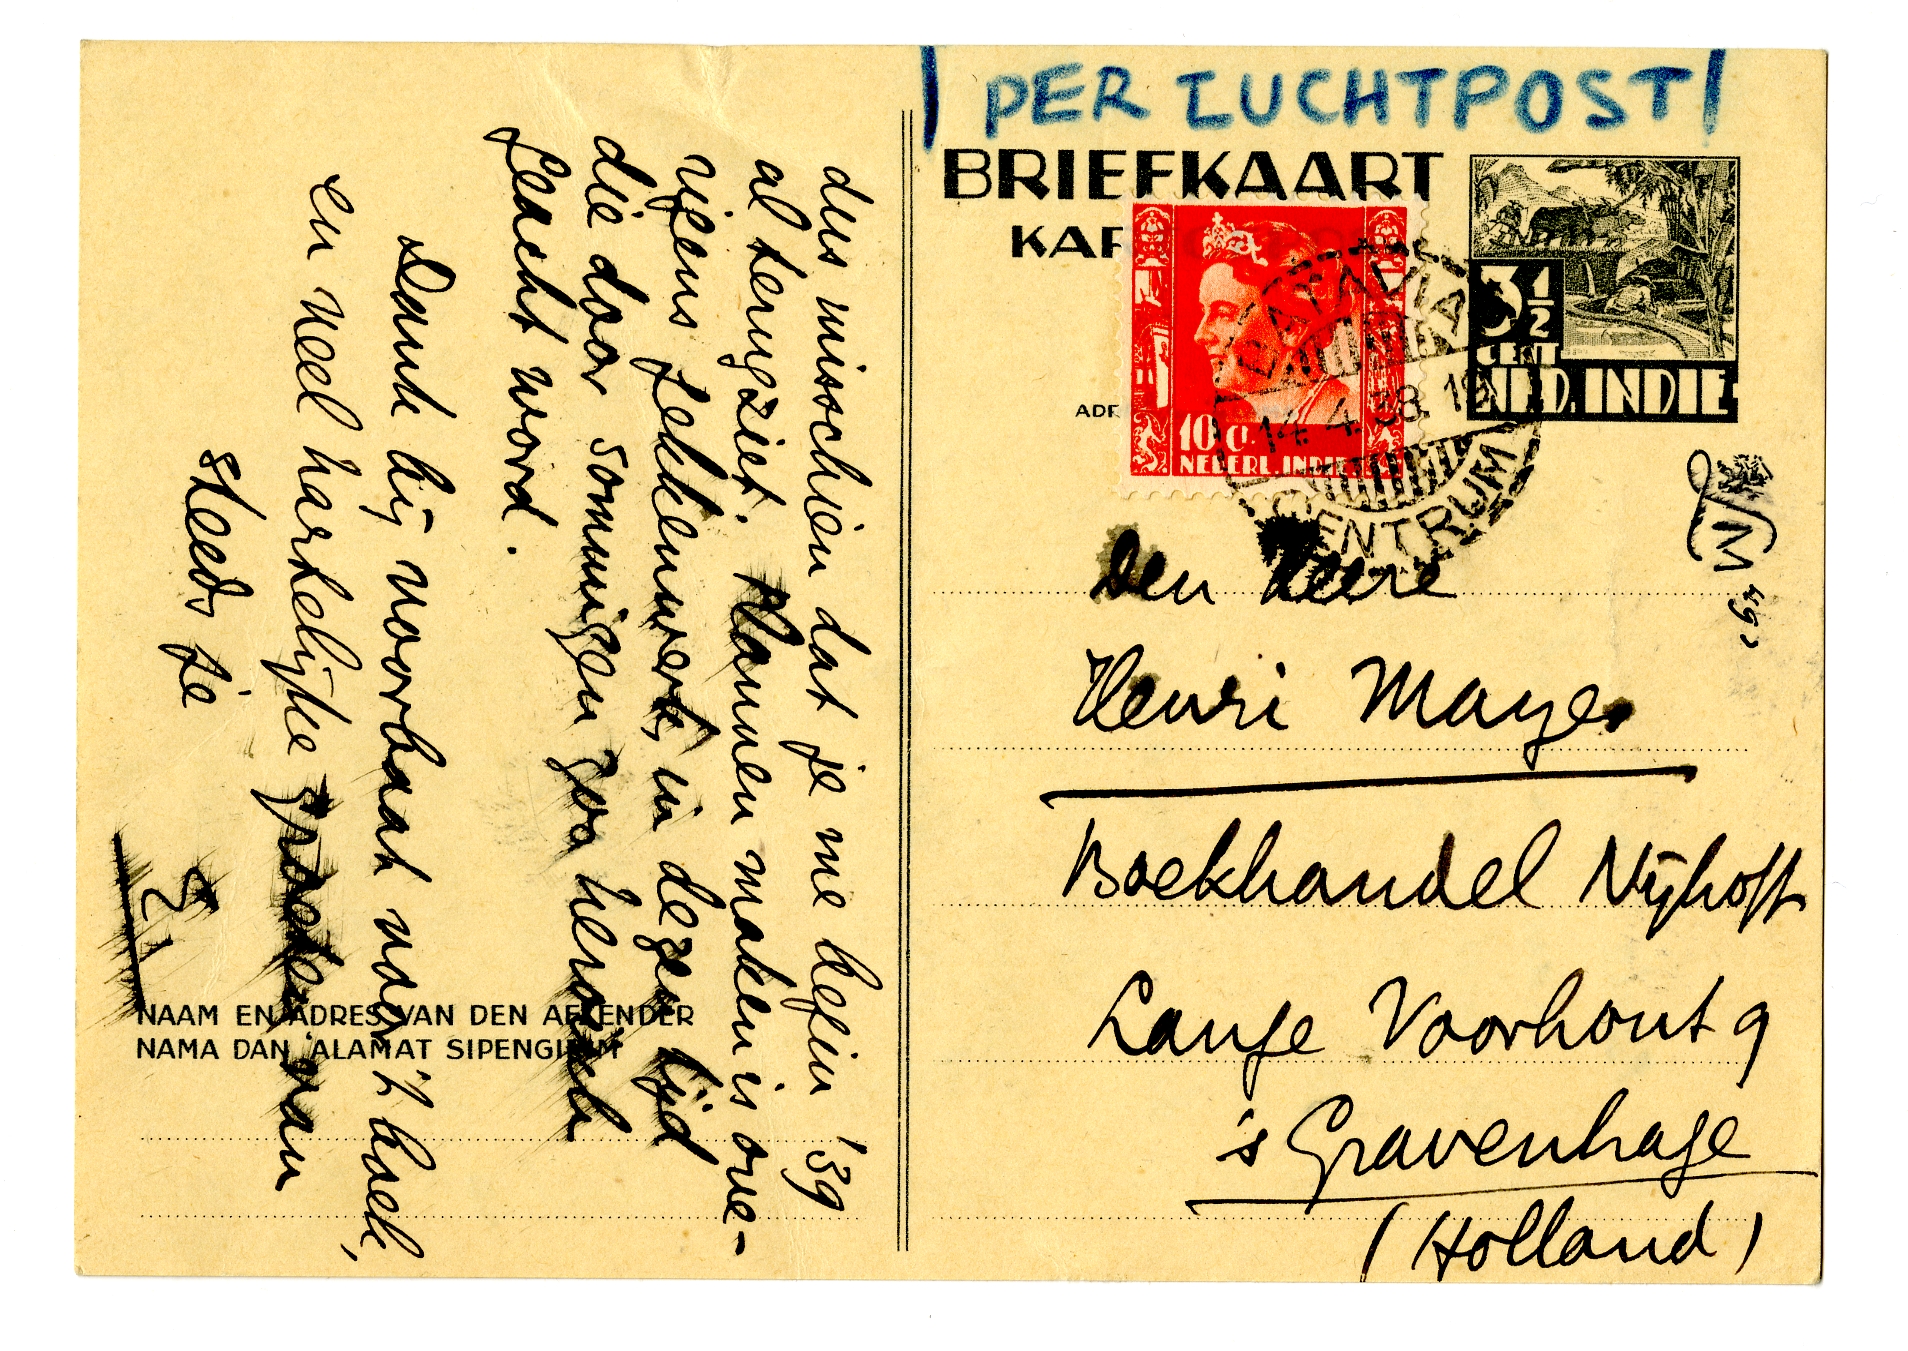 dus misschien dat je me begin '39
al terugziet. Plannen maken is ove-
rigens gekkenwerk, in dezen tijd
die door sommigen zoo heroïsch
geacht word.
Dank bij voorbaat voor 't boek,
en veel hartelijke groeten van
steeds je
E
NAAM EN ADRES VAN DEN AFZENDER
NAMA DAN ALAMAT SIPENGIRIM
PER LUCHTPOST
BRIEFKAART
KAR
3½
CENT
NED. INDIE
10 Ct.
NEDERL. INDIE
BATAVIA
14.4.38.19
CENTRUM
ADR
Den Heere
Henri Mayer
Boekhandel Nijhoff
Lange Voorhout 9
's Gravenhage
(Holland)